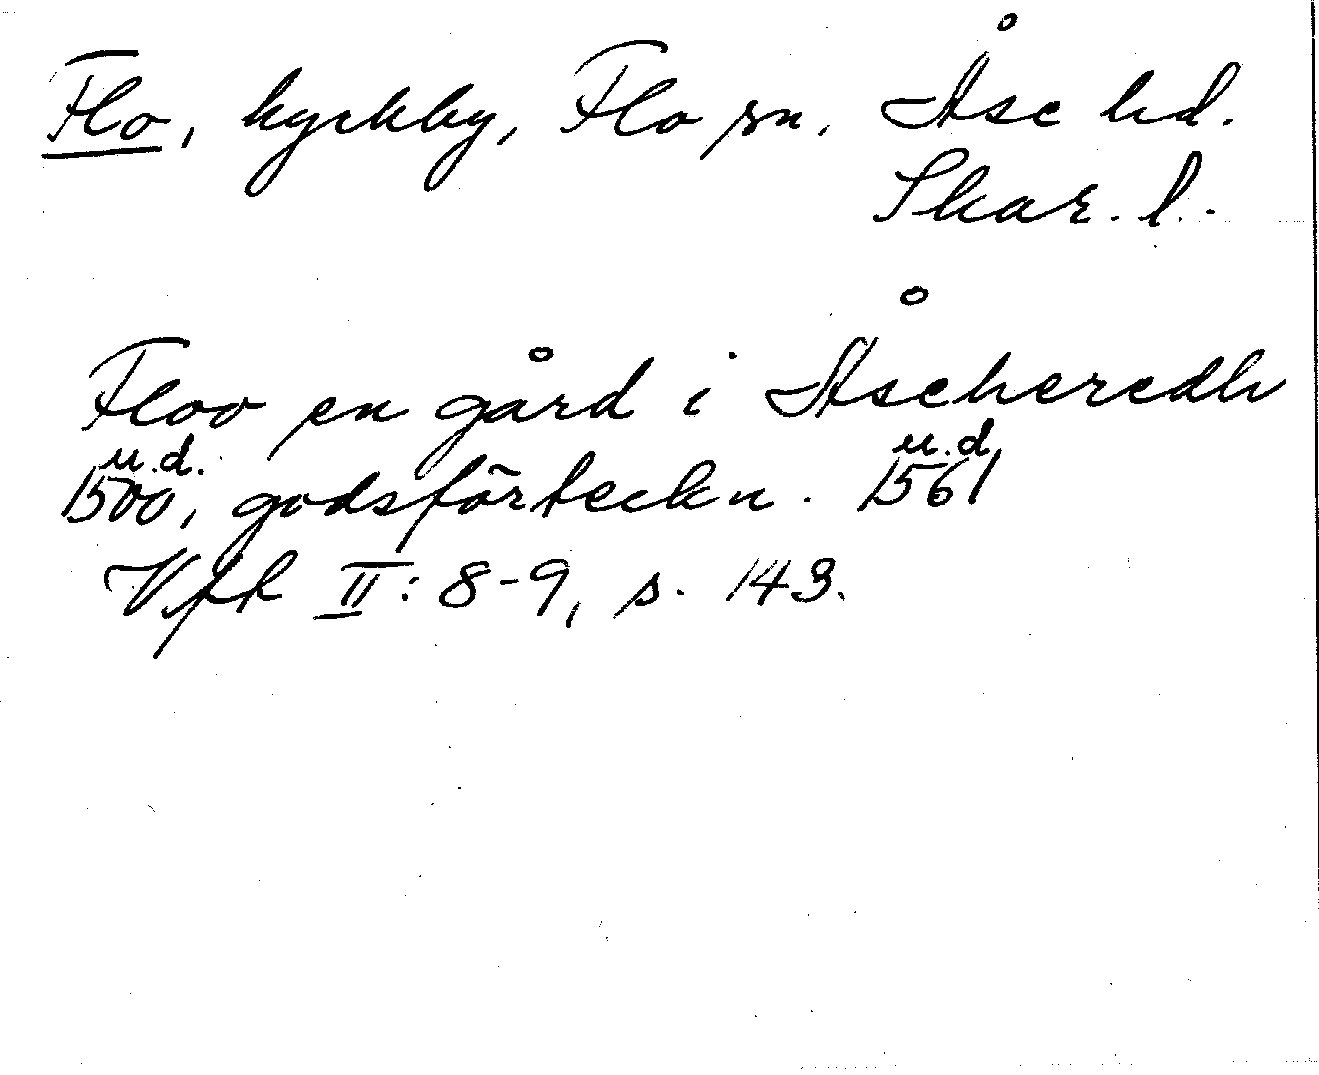 Flo, kyrkby, Flo sn, Åse hd.
Skar. l.
Floo en gård i Åseheredh
u.d. u.d.
1500, godsförteckn. 1561
Vfk II: 8-9, s. 143.